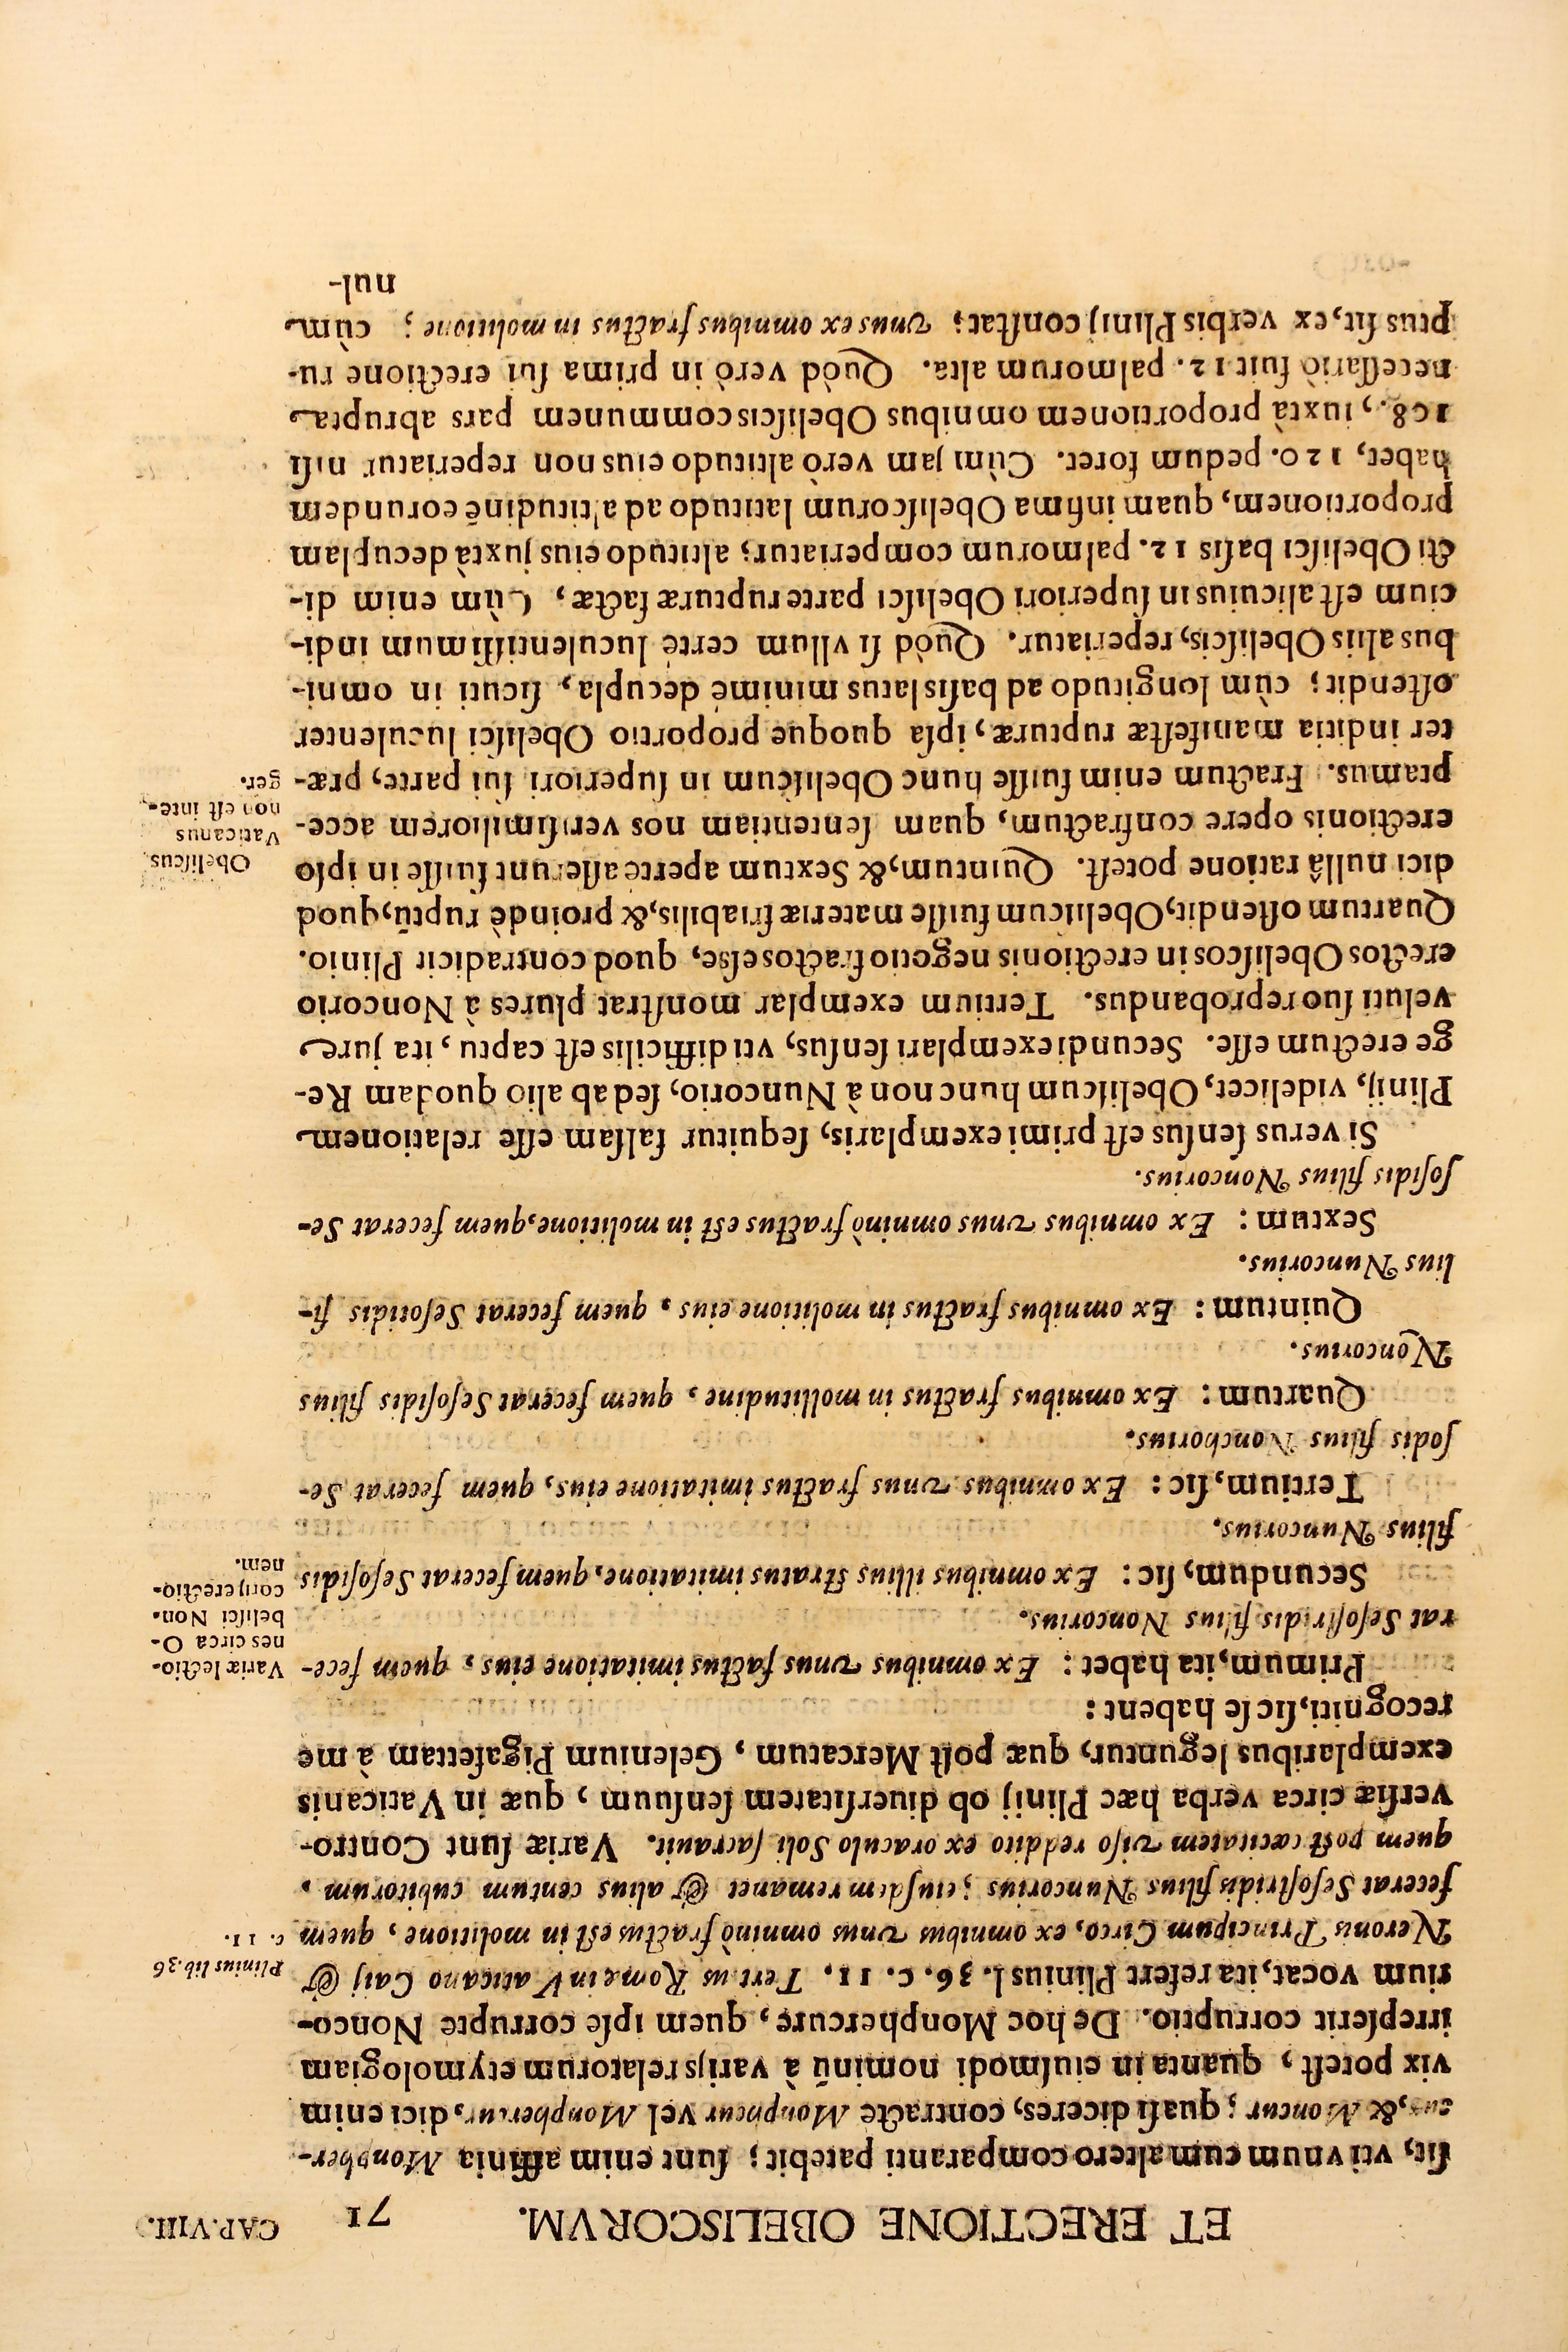 ET ERECTIONE OBELISCORVM. 71 CAP. VIII.
ſit, vti vnum cum altero comparanti patebit; ſunt enim affinia Monpher-
cur, & Moncur; quaſi diceres, contractè Monphcur vel Monphercur, dici enim
vix poteſt, quanta in eiuſmodi nominũ à varijs relatorum etymologiam
irrepſerit corruptio. De hoc Monphercure, quem ipſe corruptè Nonco-
rium vocat, ita refert Plinius l. 36. c. 11. Tertius Romæ in Vaticano Caij &
Plinius lib. 36
c. 11.
Neronis Principum Circo, ex omnibus vnus omninò fractus est in molitione, quem
fecerat Seſoſtridis filius Nuncorius; eiuſdem remanet & alius centum cubitorum,
quem post cæcitatem viſo reddito ex oraculo Soli ſacrauit. Variæ ſunt Contro-
verſiæ circa verba hæc Plinij ob diuerſitatem ſenſuum, quæ in Vaticanis
exemplaribus leguntur, quæ poſt Mercatum, Gelenium Pigafettam à me
recogniti, ſic ſe habent:
Primum, ita habet: Ex omnibus vnus factus imitatione eius, quem fece-
rat Seſoſtridis filius Noncorius.
Variæ lectio-
nes circa O-
beliſci Non-
corij erectio-
nem.
Secundum, ſic: Ex omnibus illius stratus imitatione, quem fecerat Seſoſidis
filius Nuncorius.
Tertium, ſic: Ex omnibus vnus fractus imitatione eius, quem fecerat Se-
ſodis filius Nonchorius.
Quartum: Ex omnibus fractus in mollitudine, quem fecerat Seſoſidis filius
Noncorius.
Quintum: Ex omnibus fractus in molitione eius, quem fecerat Seſotidis fi-
lius Nuncorius.
Sextum: Ex omnibus vnus omninò fractus est in molitione, quem fecerat Se-
ſoſidis filius Noncorius.
Si verus ſenſus eſt primi exemplaris, ſequitur falſam eſſe relationem
Plinij, videlicet, Obeliſcum hunc non à Nuncorio, ſed ab alio quodam Re-
ge erectum eſſe. Secundi exemplari ſenſus, vti difficilis eſt captu, ita jure
veluti ſuo reprobandus. Tertium exemplar monſtrat plures à Noncorio
erectos Obeliſcos in erectionis negotio fractos eſse, quod contradicit Plinio.
Quartum oſtendit, Obeliſcum fuiſſe materiæ friabilis, & proindè ruptũ, quod
dici nullâ ratione poteſt. Quintum, & Sextum apertè aſſerunt fuiſſe in ipſo
erectionis opere confractum, quam ſententiam nos veriſimiliorem acce-
ptamus. Fractum enim fuiſſe hunc Obeliſcum in ſuperiori ſui parte, præ-
Obeliſcus
Vaticanus
non eſt inte-
ger.
ter indicia manifeſtæ rupturæ, ipſa quoque proportio Obeliſci luculenter
oſtendit; cùm longitudo ad baſis latus minimè decupla, ſicuti in omni-
bus aliis Obeliſcis, reperiatur. Quòd ſi vllum certè luculentiſſimum indi-
cium eſt alicuius in ſuperiori Obeliſci parte rupturæ factæ, Cùm enim di-
cti Obeliſci baſis 12. palmorum comperiatur; altitudo eius juxtà decuplam
proportionem, quam infima Obeliſcorum latitudo ad altitudinẽ eorundem
habet, 120. pedum foret. Cùm jam verò altitudo eius non reperiatur niſi
108., iuxtà proportionem omnibus Obeliſcis communem pars abrupta
neceſſariò fuit 12. palmorum alta. Quòd verò in prima ſui erectione ru-
ptus ſit, ex verbis Plinij conſtat; vnus ex omnibus fractus in molitione; cùm
nul-